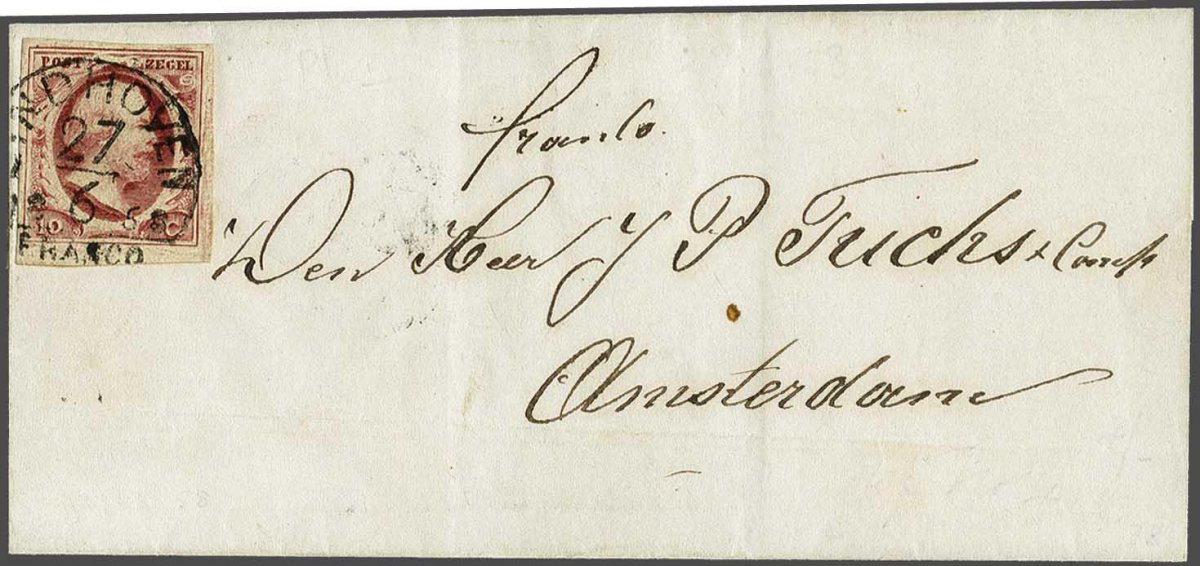 POST ZEGEL
INDHOVEN
27
6
10 C
FRANCO
franco.
Den Heer J P Fuchs & Comp
Amsterdam